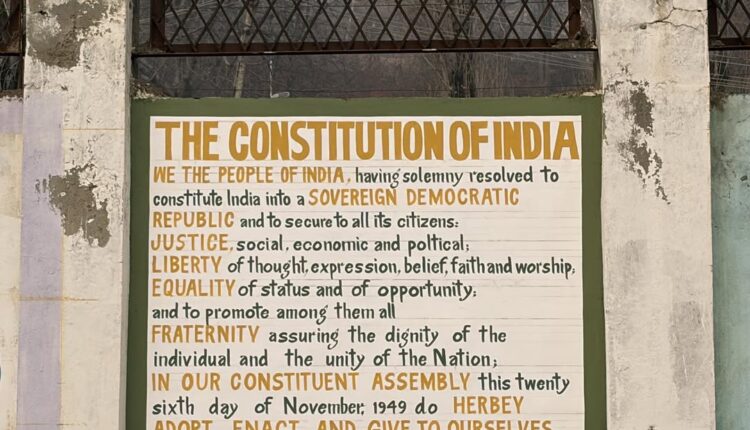 THE CONSTITUTION OF INDIA
WE THE PEOPLE OF INDIA, having solemny resolved to
constitute India into a SOVEREIGN DEMOCRATIC
REPUBLIC and to secure to all its citizens:
JUSTICE, social, economic and poltical;
LIBERTY of thought, expression, belief, faith and worship;
EQUALITY of status and of opportunity;
and to promote among them all
FRATERNITY assuring the dignity of the
individual and the unity of the Nation;
IN OUR CONSTITUENT ASSEMBLY this twenty
sixth day of November, 1949 do HERBEY
ADOPT, ENACT AND GIVE TO OURSELVES